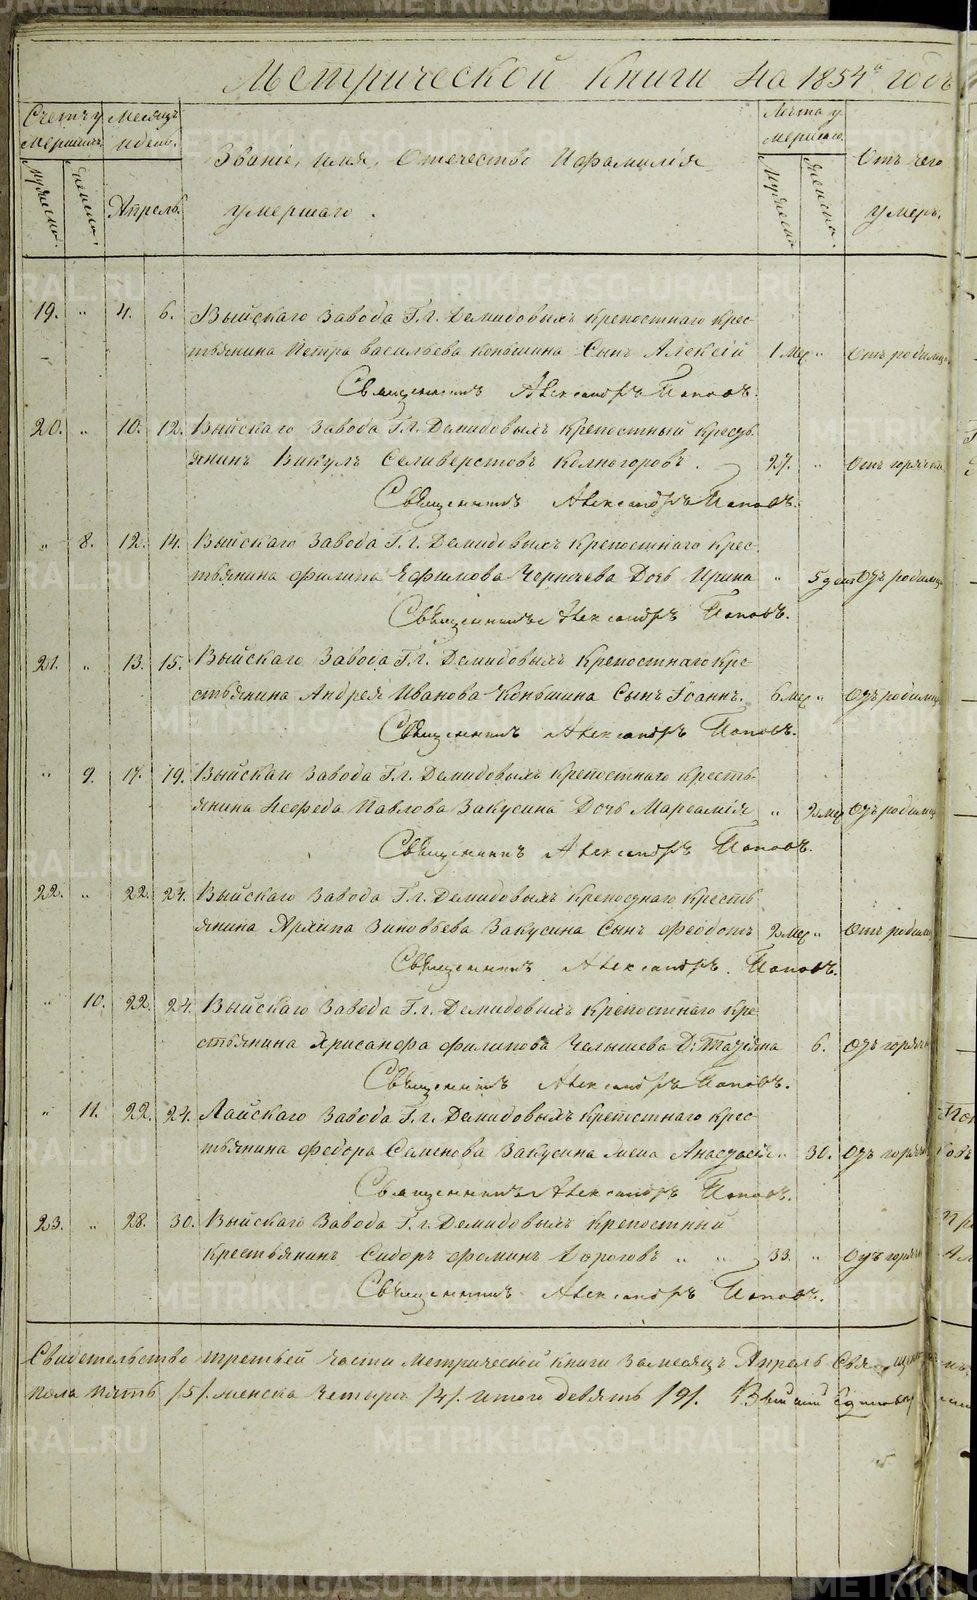 Метрической Книги на 1854й годъ
Счетъ умершихъ. Месяцъ и день. Званіе, имя, Отечество И фамилія умершаго. Лѣта умершаго. Отъ чего умеръ.
Мужеска. Женска. Апрель. Мужеска. Женска.
19. " 4. 6. Выйскаго Завода Г.г. Демидовыхъ крепостнаго крес-
тьянина Петра Васильева Коньшина Сынъ Алексій 1 Мес. " Отъ родимца
Священникъ Александръ Поповъ.
20. " 10. 12. Выйскаго Завода Г.г. Демидовыхъ крепостный кресть-
янинъ Викулъ Селиверстовъ Колногоровъ. 27. " Отъ горячки
Священникъ Александръ Поповъ.
" 8. 12. 14. Выйскаго Завода Г.г. Демидовыхъ крепостнаго крес-
тьянина Филипа Ефимова Дочь Ирина " 5 дней Отъ родимца
Священникъ Александръ Поповъ.
21. " 13. 15. Выйскаго Завода Г.г. Демидовыхъ Крепостнаго кре-
стьянина Андрея Иванова Коньшина Сынъ Іоаннъ. 6 Мес. " Отъ родимца
Священникъ Александръ Поповъ.
" 9. 17. 19. Выйскаго Завода Г.г. Демидовыхъ крепостнаго кресть-
янина Павлова Закусина Дочь Мареамія " 2 мес. Отъ родимца
Священникъ Александръ Поповъ.
22. " 22. 24. Выйскаго Завода Г.г. Демидовыхъ Крепостнаго Кресть-
янина Архипа Зиновьева Закусина Сынъ Феодотъ 2 Мес. " Отъ родимца
Священникъ Александръ Поповъ.
" 10. 22. 24. Выйскаго Завода Г.г. Демидовыхъ Крепостнаго кре-
стьянина Хрисанфа Филипова Челышева Д: Татьяна 6. Отъ горячки
Священникъ Александръ Поповъ.
" 11. 22. 24. Лайскаго Завода Г.г. Демидовыхъ Крепостнаго крес-
тьянина Федора Семенова Закусина жена Анастасія " 30. Отъ горячки
Священникъ Александръ Поповъ.
23. " 28. 30. Выйскаго Завода Г.г. Демидовыхъ Крепостный
крестьянинъ Сидоръ Фоминъ Дороговъ " " 33. " Отъ горячки
Священникъ Александръ Поповъ.
Свидетельство третьей части Метрической Книги за месяцъ Апрель
пола пять /5/. женска четыре /4/. итого девять /9/.